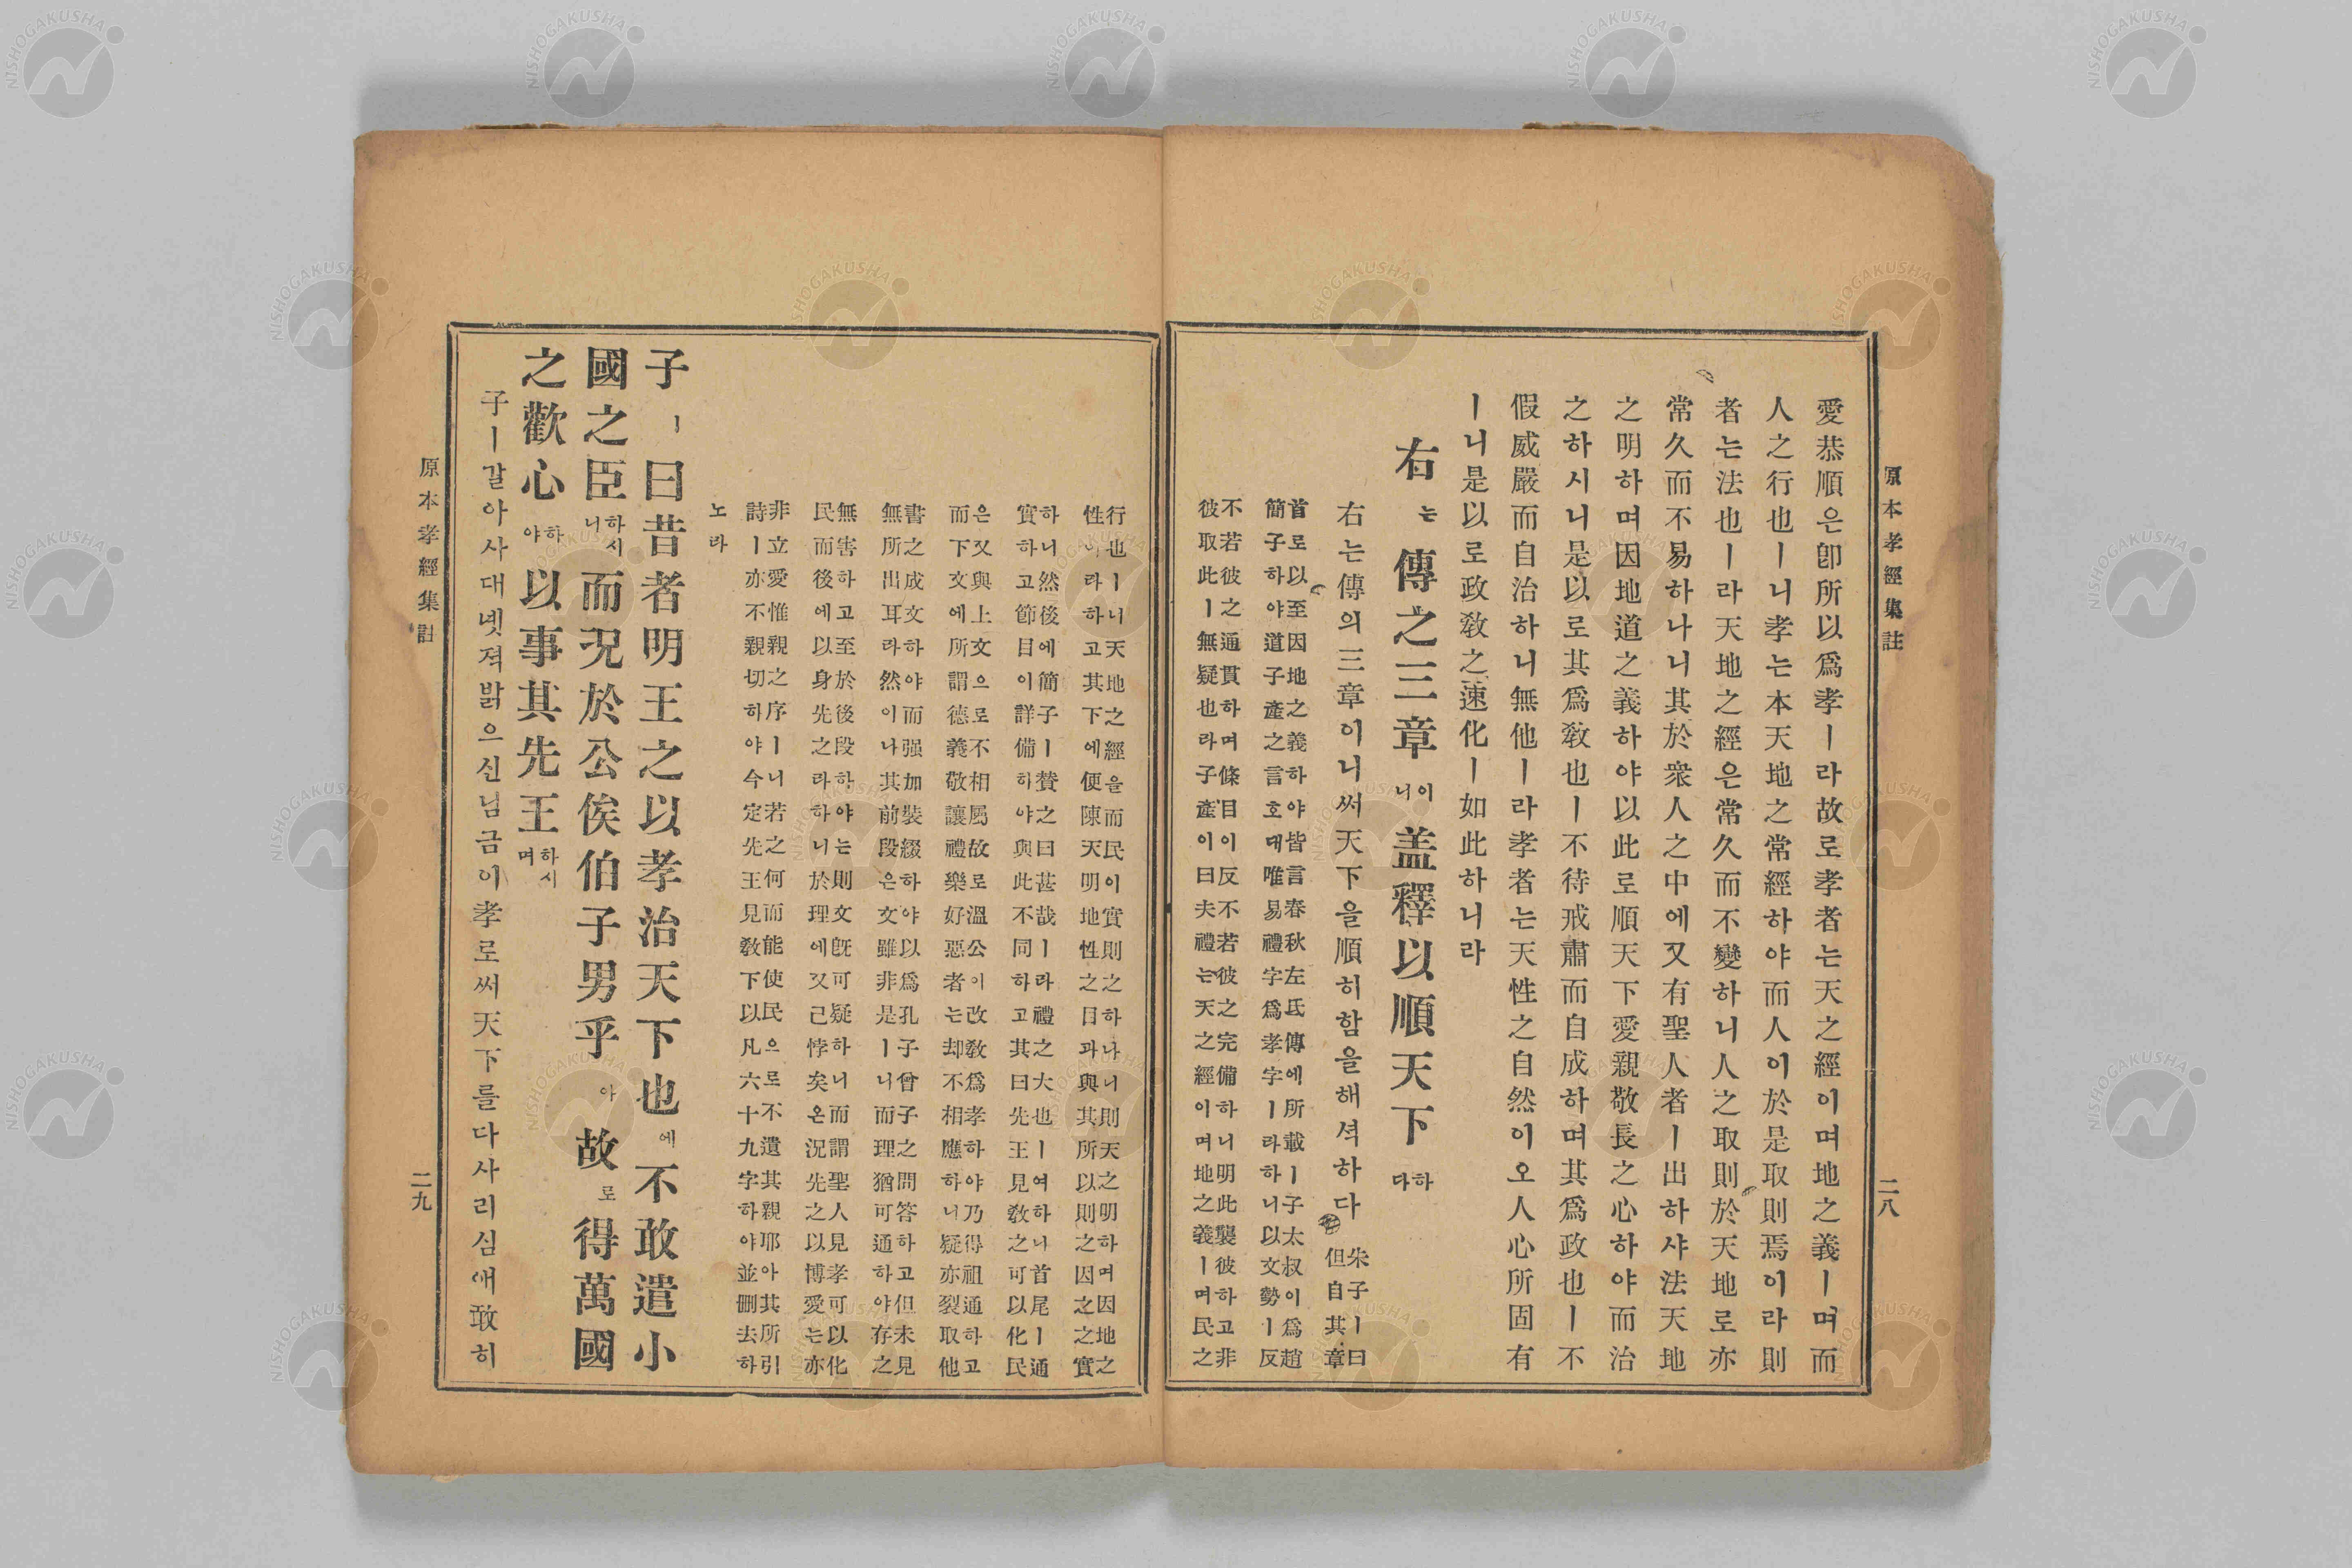 原本孝經集註
二八
愛恭順은卽所以爲孝ㅣ라故로孝者는天之經이며地之義ㅣ며而
人之行也ㅣ니孝는本天地之常經하야而人이於是取則焉이라則
者는法也ㅣ라天地之經은常久而不變하니人之取則於天地로亦
常久而不易하나니其於衆人之中에又有聖人者ㅣ出하샤法天地
之明하며因地道之義하야以此로順天下愛親敬長之心하야而治
之하시니是以로其爲敎也ㅣ不待戒肅而自成하며其爲政也ㅣ不
假威嚴而自治하니無他ㅣ라孝者는天性之自然이오人心所固有
ㅣ니是以로政敎之速化ㅣ如此하니라
右는傳之三章이니盖釋以順天下하다
右는傳의三章이니써天下을順히함을해셕하다
朱子ㅣ曰
但自其章
首로以至因地之義하야皆言春秋左氏傳에所載ㅣ子太叔이爲趙
簡子하야道子產之言호대唯易禮字爲孝字ㅣ라하니以文勢ㅣ反
不若彼之通貫하며條目이反不若彼之完備하니明此襲彼하고非
彼取此ㅣ無疑也라子產이曰夫禮는天之經이며地之義ㅣ며民之
行也ㅣ니天地之經을而民이實則之하나니則天之明하며因地之
性이라하고其下에便陳天明地性之目과與其所以則之因之之實
하니然後에簡子ㅣ贊之曰甚哉ㅣ라禮之大也ㅣ여하니首尾ㅣ通
實하고節目이詳備히야與此不同하고其曰先王見敎之可以化民
은又與上文으로不相屬故로溫公이改敎爲孝하야乃得祖通하고
而下文에所謂德義敬讓禮樂好惡者는却不相應하니疑亦裂取他
書之成文하야而强加裝綴하야以爲孔子曾子之問答하고但未見
無所出耳라然이나其前段은文雖非是ㅣ니而理猶可通하야存之
無害하고至於後段하야는則文旣可疑하니而謂聖人見孝可以化
民而後에以身先之라하니於理에又己悖矣온况先之以博愛는亦
非立愛惟親之序ㅣ니若之何而能使民으로不遺其親耶아其所引
詩ㅣ亦不親切하야今定先王見敎下以凡六十九字하야並刪去하
노라
子ㅣ曰昔者明王之以孝治天下也에不敢遣小
國之臣하시니而况於公侯伯子男乎아故로得萬國
之歡心하야以事其先王하시며
子ㅣ갈아사대녯젹밝으신님금이孝로써天下를다사리심애敢히
原本孝經集註
二九